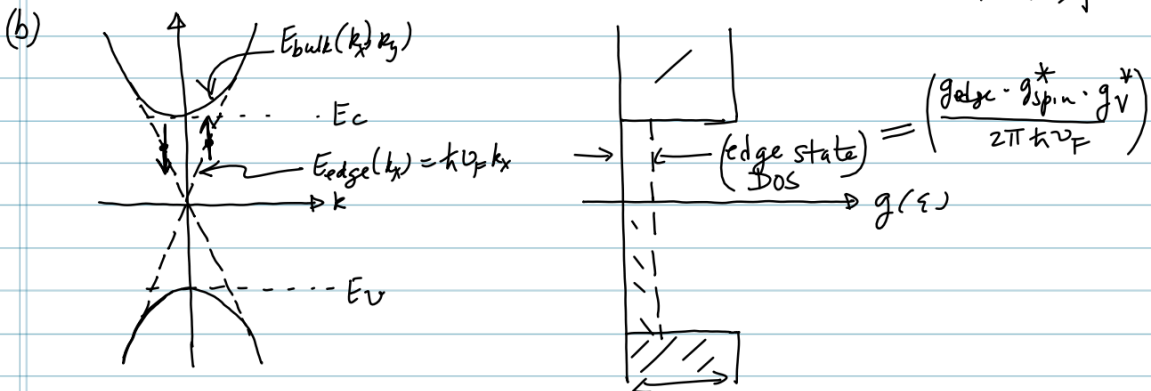 (b)
E_bulk(k_x, k_y)
E_c
E_edge(k_x) = ħv_F k_x
k
E_v
(edge state DOS) = (g_edge · g*_spin · g_v* / 2πħv_F)
g(ε)